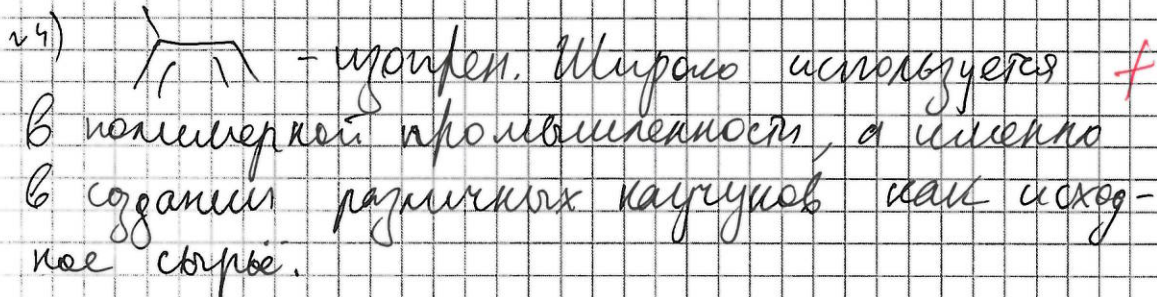 №4) – изопрен. Широко используется +
в полимерной промышленности, а именно
в создании различных каучуков как исход-
ное сырьё.